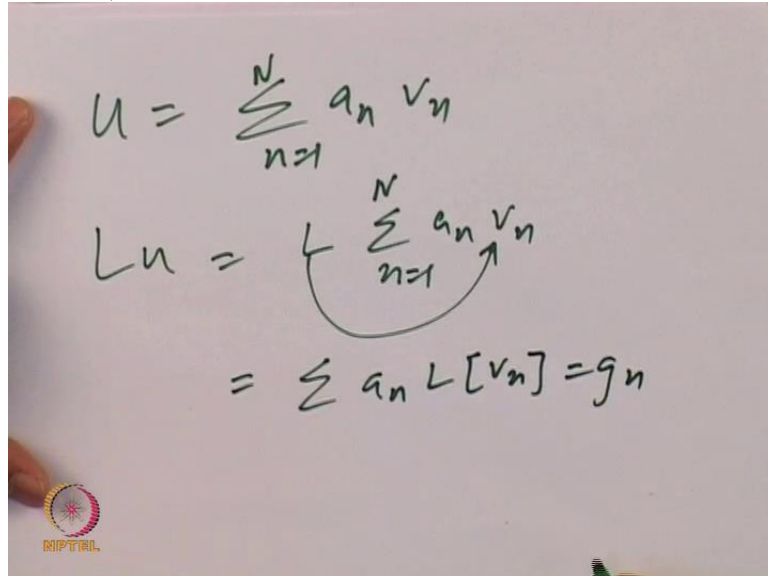 u = N Σ n=1 a_n v_n
Lu = L N Σ n=1 a_n v_n
= Σ a_n L[v_n] = g_n
NPTEL